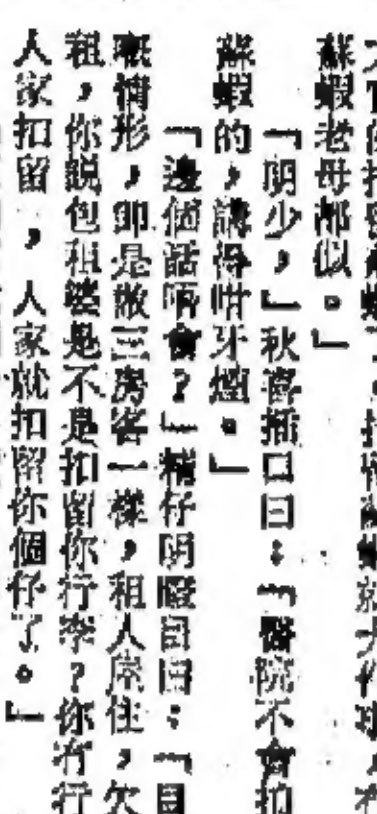 蘇蝦老母都似。」
「明少,」秋喜插口曰:「醫院不會扣
蘇蝦的,講得咁牙煙。」
「邊個話唔會?」精仔明曖曰:「目
嘅情形,卽是欺三房客一樣,租人房住,欠
租,你説包租婆是不是扣留你行李?你冇行
人家扣留,人家就扣留你個仔了。」